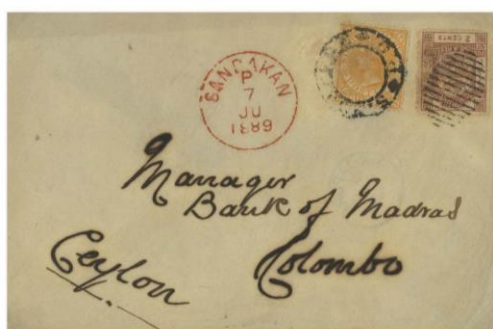 2 CENTS
SANDAKAN
P
7
JU
1889
Manager
Bank of Madras
Colombo
Ceylon